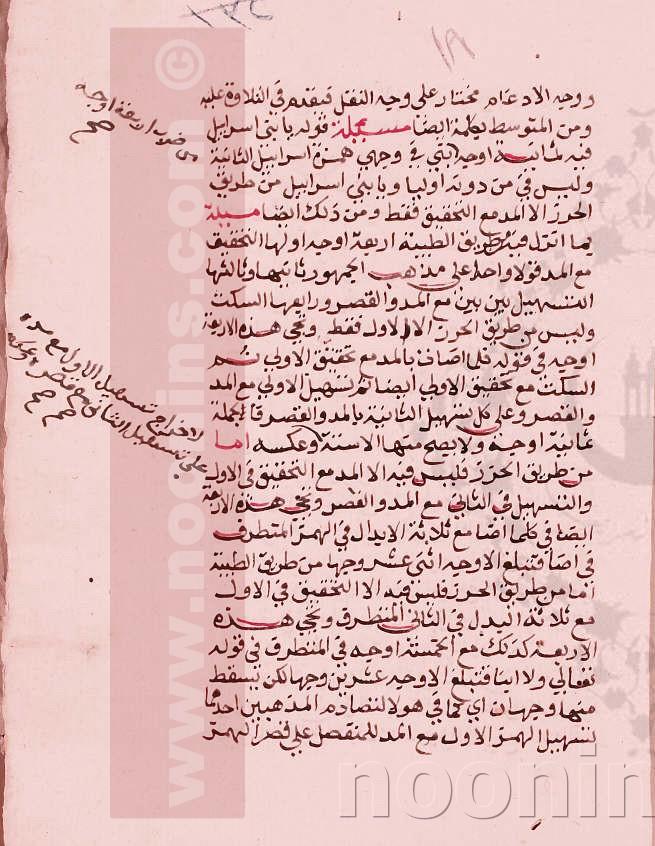 ١٩
ووجه الادغام مختار على وجه النقل فيقدم في التلاوة عليه
ومن المتوسط بكلمة ايضا مسئلة قوله يا بني اسرايل
فيه ثمانية اوجه ابتي في وجهي همزة اسرايل الثانية
وليس في من دونه اوليا ويا بني اسرايل من طريق
الحرز الا المد مع التحقيق فقط ومن ذلك ايضا مسئلة
بما انزل فيه من طريق الطيبة اربعة اوجه اولها التحقيق
مع المد قولا واحدا على مذهب الجمهور ثانيها وثالثها
التسهيل بين بين مع المد والقصر ورابعها السكت
وليس من طريق الحرز الا الاول فقط وتجي هذه الاربعة
اوجه في قوله قل اصاف بالمد مع تحقيق الاولي ثم
السكت مع تحقيق الاولي ايضا ثم تسهيل الاولي مع المد
والقصر وعلى كل تسهيل الثانية بالمد والقصر فالجملة
ثمانية اوجه ولا يصح منها الا ستة وعكسه اما
من طريق الحرز فليس فيه الا المد مع التحقيق في الاول
والتسهيل في الثاني مع المد والقصر وتجي هذه الاربعة
ايضا في كلما اضا مع ثلاثة الابدال في الهمز المتطرف
في اضا فتبلغ الاوجه اثني عشر وجها من طريق الطيبة
اما من طريق الحرز فليس فيه الا التحقيق في الاول
مع ثلاثة البدل في الثاني المتطرف وتجي هذه
الاربعة كذلك مع الخمسة اوجه في المتطرف في قوله
تعالي ولا ابنا فتبلغ الاوجه عشرين وجها لكن يسقط
منها وجهان اي كما في هولا لتصادم المذهبين احدهما
تسهيل الهمز الاول مع المد للمنفصل علي قصر الهمز
من ضرب اربعة اوجه
صح
لاخراج تسهيل الاول مع مده
على تسهيل الثاني مع قصره وعكسه
صح صح
www.noonins.com ©
noonin